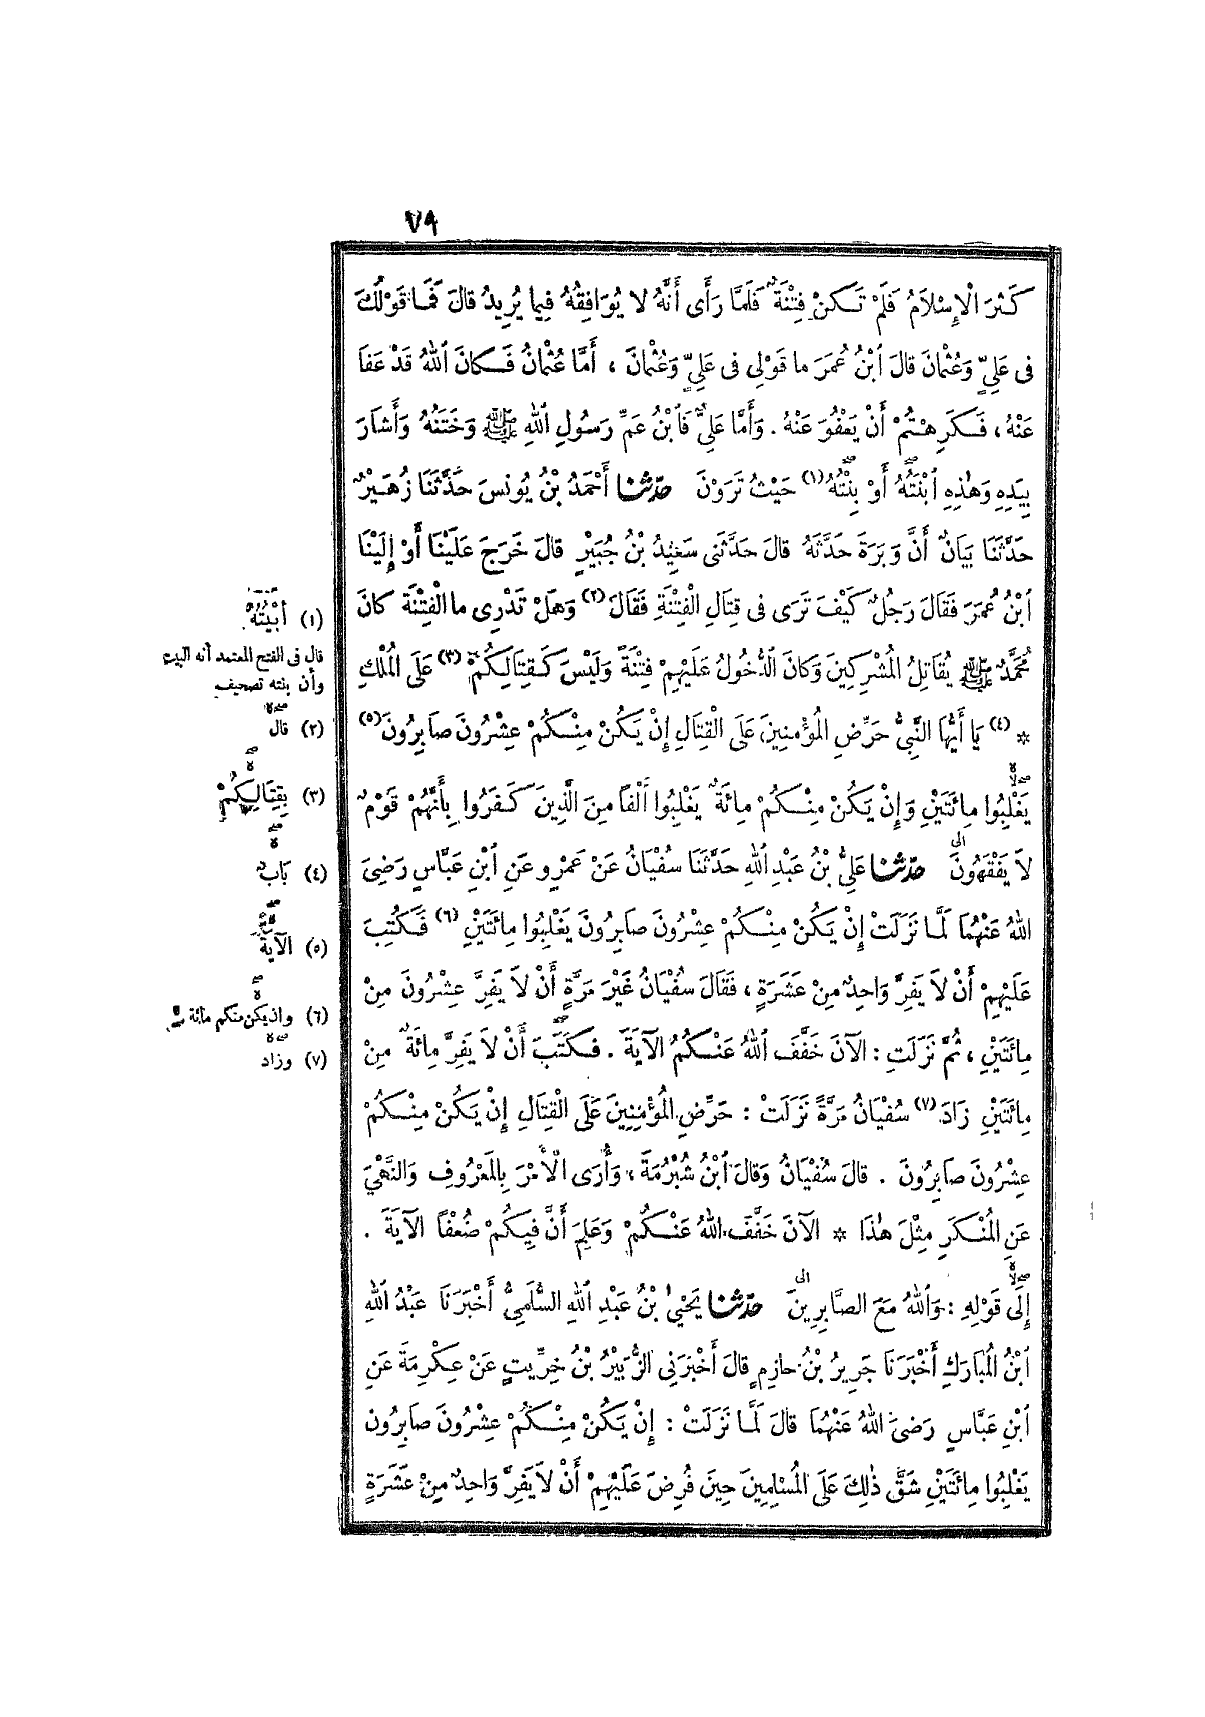 ٧٩
كَثُرَ الْإِسْلاَمُ فَلَمْ تَكُنْ فِتْنَةٌ فَلَمَّا رَأَى أَنَّهُ لا يُوَافِقُهُ فِيما يُرِيدُ قالَ فَمَا قَوْلُكَ
فِى عَلِيٍّ وَعُثْمانَ قالَ ٱبْنُ عُمَرَ ما قَوْلِى فِى عَلِيٍّ وَعُثْمانَ ، أَمَّا عُثْمانُ فَكانَ اللهُ قَدْ عَفَا
عَنْهُ ، فَكَرِهْتُمْ أَنْ يَعْفُوَ عَنْهُ . وَأَمَّا عَلِيٌّ فَٱبْنُ عَمِّ رَسُولِ ٱللهِ ﷺ وَخَتَنُهُ وَأَشارَ
بِيَدِهِ وَهٰذِهِ ٱبْنَتُهُ أَوْ بِنْتُهُ (١) حَيْثُ تَرَوْنَ حدّثنا أَحْمَدُ بْنُ يُونُسَ حَدَّثَنَا زُهَيْرٌ
حَدَّثَنَا بَيَانٌ أَنَّ وَبَرَةَ حَدَّثَهُ قالَ حَدَّثَنى سَعِيدُ بْنُ جُبَيْرٍ قالَ خَرَجَ عَلَيْنَا أَوْ إِلَيْنَا
ٱبْنُ عُمَرَ فَقَالَ رَجُلٌ كَيْفَ تَرَى فى قِتَالِ الْفِتْنَةِ فَقَالَ (٢) وَهَلْ تَدْرِى ما الْفِتْنَةُ كانَ
مُحَمَّدٌ ﷺ يُقَاتِلُ المُشْرِكِينَ وَكانَ الدُّخُولُ عَلَيْهِمْ فِتْنَةً وَلَيْسَ كَقِتَالِكُمْ (٣) عَلَى المُلْكِ
* (٤) يَا أَيُّهَا النَّبِيُّ حَرِّضِ المُؤْمِنِينَ عَلَى الْقِتَالِ إِنْ يَكُنْ مِنْكُمْ عِشْرُونَ صَابِرُونَ (٥)
يَغْلِبُوا مِائَتَيْنِ وَإِنْ يَكُنْ مِنْكُمْ مِائَةٌ يَغْلِبُوا أَلْفاً مِنَ الَّذِينَ كَفَرُوا بِأَنَّهُمْ قَوْمٌ
لاَ يَفْقَهُونَ حدّثنا عَلِيُّ بْنُ عَبْدِ ٱللهِ حَدَّثَنَا سُفْيَانُ عَنْ عَمْرٍو عَنِ ٱبْنِ عَبَّاسٍ رَضِىَ
اللهُ عَنْهُمَا لَمَّا نَزَلَتْ إِنْ يَكُنْ مِنْكُمْ عِشْرُونَ صَابِرُونَ يَغْلِبُوا مِائَتَيْنِ (٦) فَكُتِبَ
عَلَيْهِمْ أَنْ لاَ يَفِرَّ وَاحِدٌ مِنْ عَشَرَةٍ ، فَقَالَ سُفْيَانُ غَيْرَ مَرَّةٍ أَنْ لاَ يَفِرَّ عِشْرُونَ مِنْ
مِائَتَيْنِ ، ثُمَّ نَزَلَتِ : الآنَ خَفَّفَ ٱللهُ عَنْكُمُ الآيَةَ . فَكَتَبَ أَنْ لاَ يَفِرَّ مِائَةٌ مِنْ
مِائَتَيْنِ زَادَ (٧) سُفْيَانُ مَرَّةً نَزَلَتْ : حَرِّضِ المُؤْمِنِينَ عَلَى الْقِتَالِ إِنْ يَكُنْ مِنْكُمْ
عِشْرُونَ صَابِرُونَ . قالَ سُفْيَانُ وَقالَ ٱبْنُ شُبْرُمَةَ ، وَأُرَى الْأَمْرَ بِالمَعْرُوفِ وَالنَّهْيَ
عَنِ المُنْكَرِ مِثْلَ هٰذَا * الآنَ خَفَّفَ اللهُ عَنْكُمْ وَعَلِمَ أَنَّ فِيكُمْ ضُعْفًا الآيَةَ .
إِلَى قَوْلِهِ : وَٱللهُ مَعَ الصَّابِرِينَ حدّثنا يَحْيىٰ بْنُ عَبْدِ ٱللهِ السُّلَمِيُّ أَخْبَرَنَا عَبْدُ ٱللهِ
ٱبْنُ المُبَارَكِ أَخْبَرَنَا جَرِيرُ بْنُ حازِمٍ قالَ أَخْبَرَنِى الزُّبَيْرُ بْنُ خِرِّيتٍ عَنْ عِكْرِمَةَ عَنِ
ٱبْنِ عَبَّاسٍ رَضِىَ اللهُ عَنْهُمَا قالَ لَمَّا نَزَلَتْ : إِنْ يَكُنْ مِنْكُمْ عِشْرُونَ صَابِرُونَ
يَغْلِبُوا مِائَتَيْنِ شَقَّ ذٰلِكَ عَلَى المُسْلِمِينَ حِينَ فُرِضَ عَلَيْهِمْ أَنْ لاَ يَفِرَّ وَاحِدٌ مِنْ عَشَرَةٍ
(١) أَبْيُتُهُ
قال فى الفتح المعتمد أنه البيت
وأن بنته تصحيف
(٢) قال
(٣) بِقِتَالِكُمْ
(٤) بَابٌ
(٥) الآيَةَ
(٦) وان يكن منكم مائة
(٧) وزاد